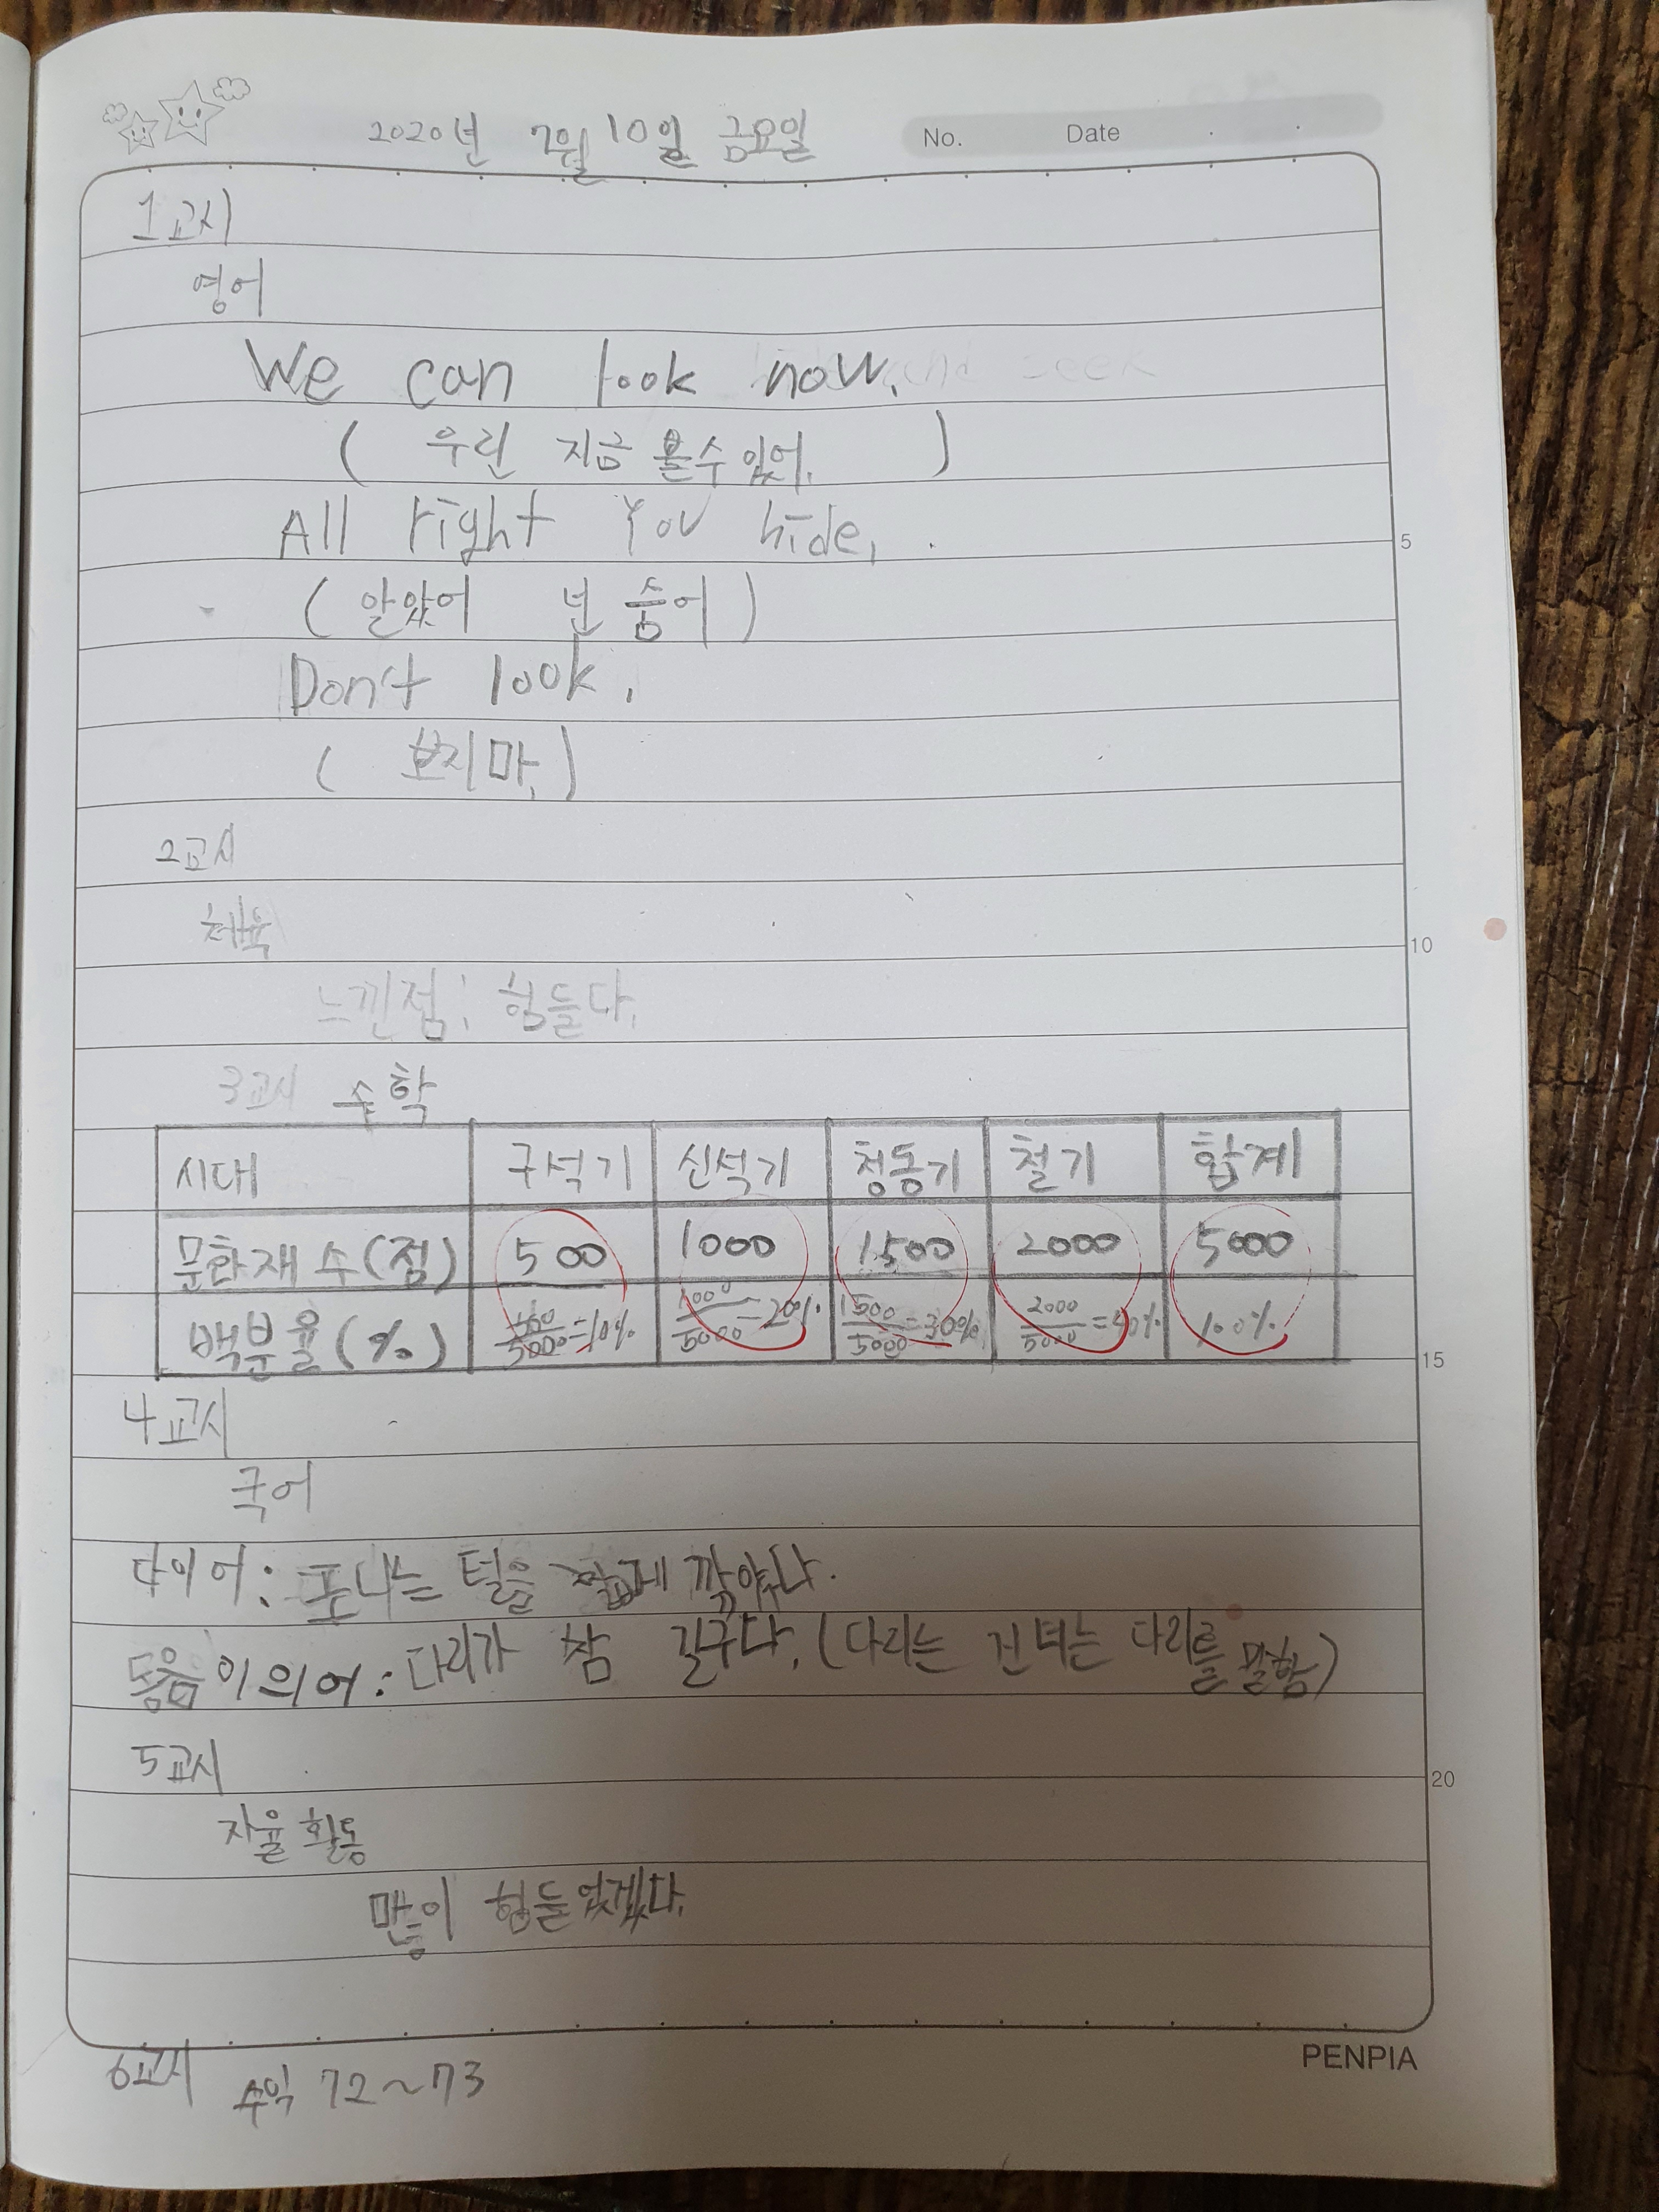 2020년 7월 10일 금요일 No. Date
1교시
영어
We can look now.
( 우린 지금 볼수 있어. )
All right You hide.
( 알았어 넌 숨어 )
Don't look.
( 보지마. )
2교시
체육
느낀점: 힘들다.
3교시 수학
시대 구석기 신석기 청동기 철기 합계
문화재 수(점) 500 1000 1500 2000 5000
백분율(%) 500/5000=10% 1000/5000=20% 1500/5000=30% 2000/5000=40% 100%
4교시
국어
다이어: 포니는 털을 짧게 깎았다.
동음이의어: 다리가 참 길구나. (다리는 건너는 다리를 말함)
5교시
자율 활동
많이 힘들었겠다.
6교시 수익 72~73
PENPIA
5
10
15
20